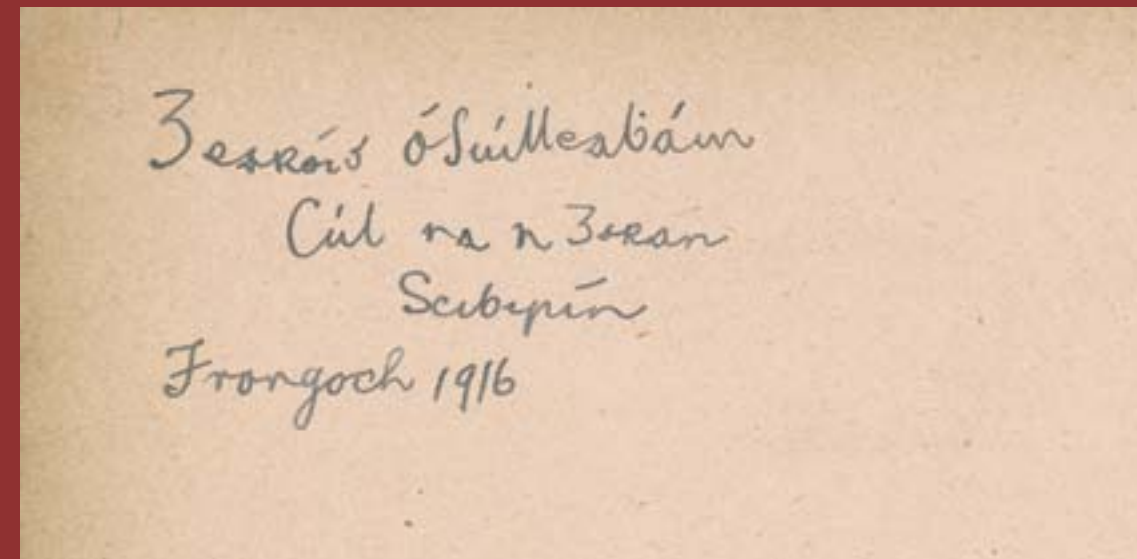 Gearóid ÓSúilleaḃáin
Cúl na nGaran
Sciбirín
Frongoch 1916